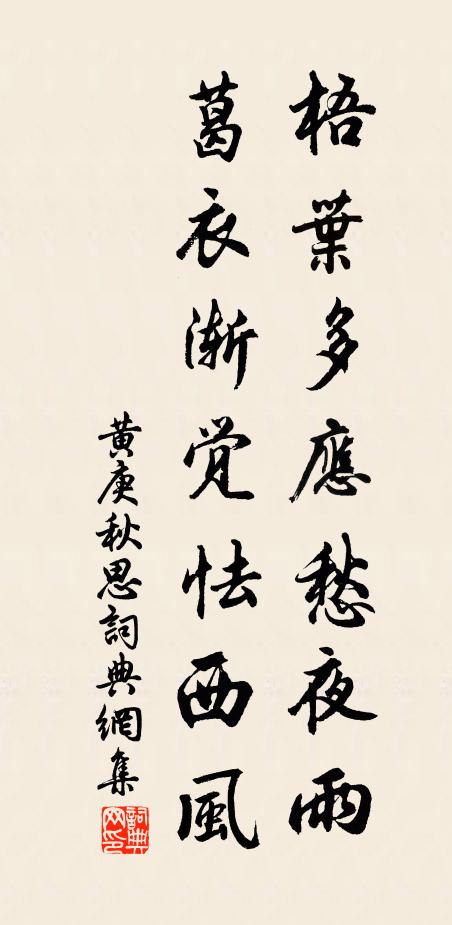 梧葉多應愁夜雨
葛衣漸覺怯西風
黄庚秋思詞典網集
詞典网印